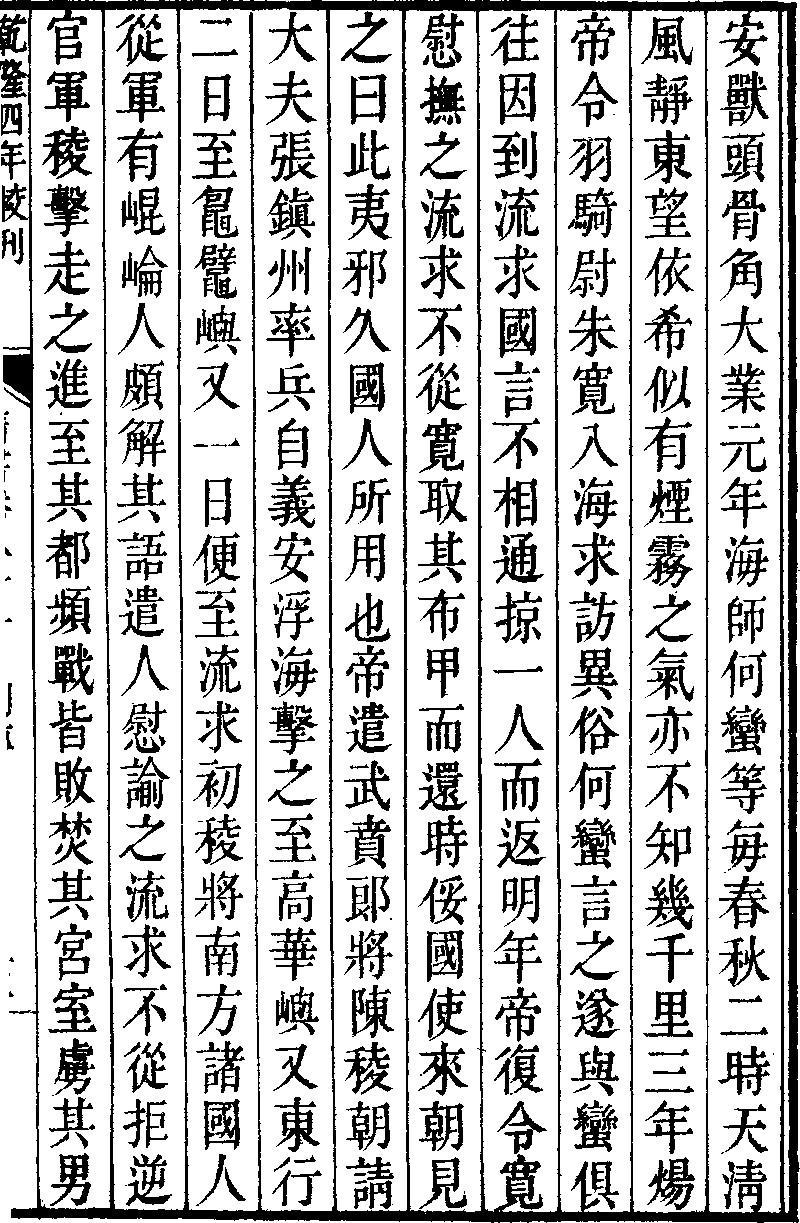 安獸頭骨角大業元年海師何蠻等每春秋二時天淸
風靜東望依希似有煙霧之氣亦不知幾千里三年煬
帝令羽騎尉朱寬入海求訪異俗何蠻言之遂與蠻俱
往因到流求國言不相通掠一人而返明年帝復令寬
慰撫之流求不從寬取其布甲而還時倭國使來朝見
之曰此夷邪久國人所用也帝遣武賁郎將陳稜朝請
大夫張鎮州率兵自義安浮海擊之至高華嶼又東行
二日至鼊嶼又一日便至流求初稜將南方諸國人
從軍有崐崘人頗解其語遣人慰諭之流求不從拒逆
官軍稜擊走之進至其都頻戰皆敗焚其宮室虜其男
乾隆四年校刊